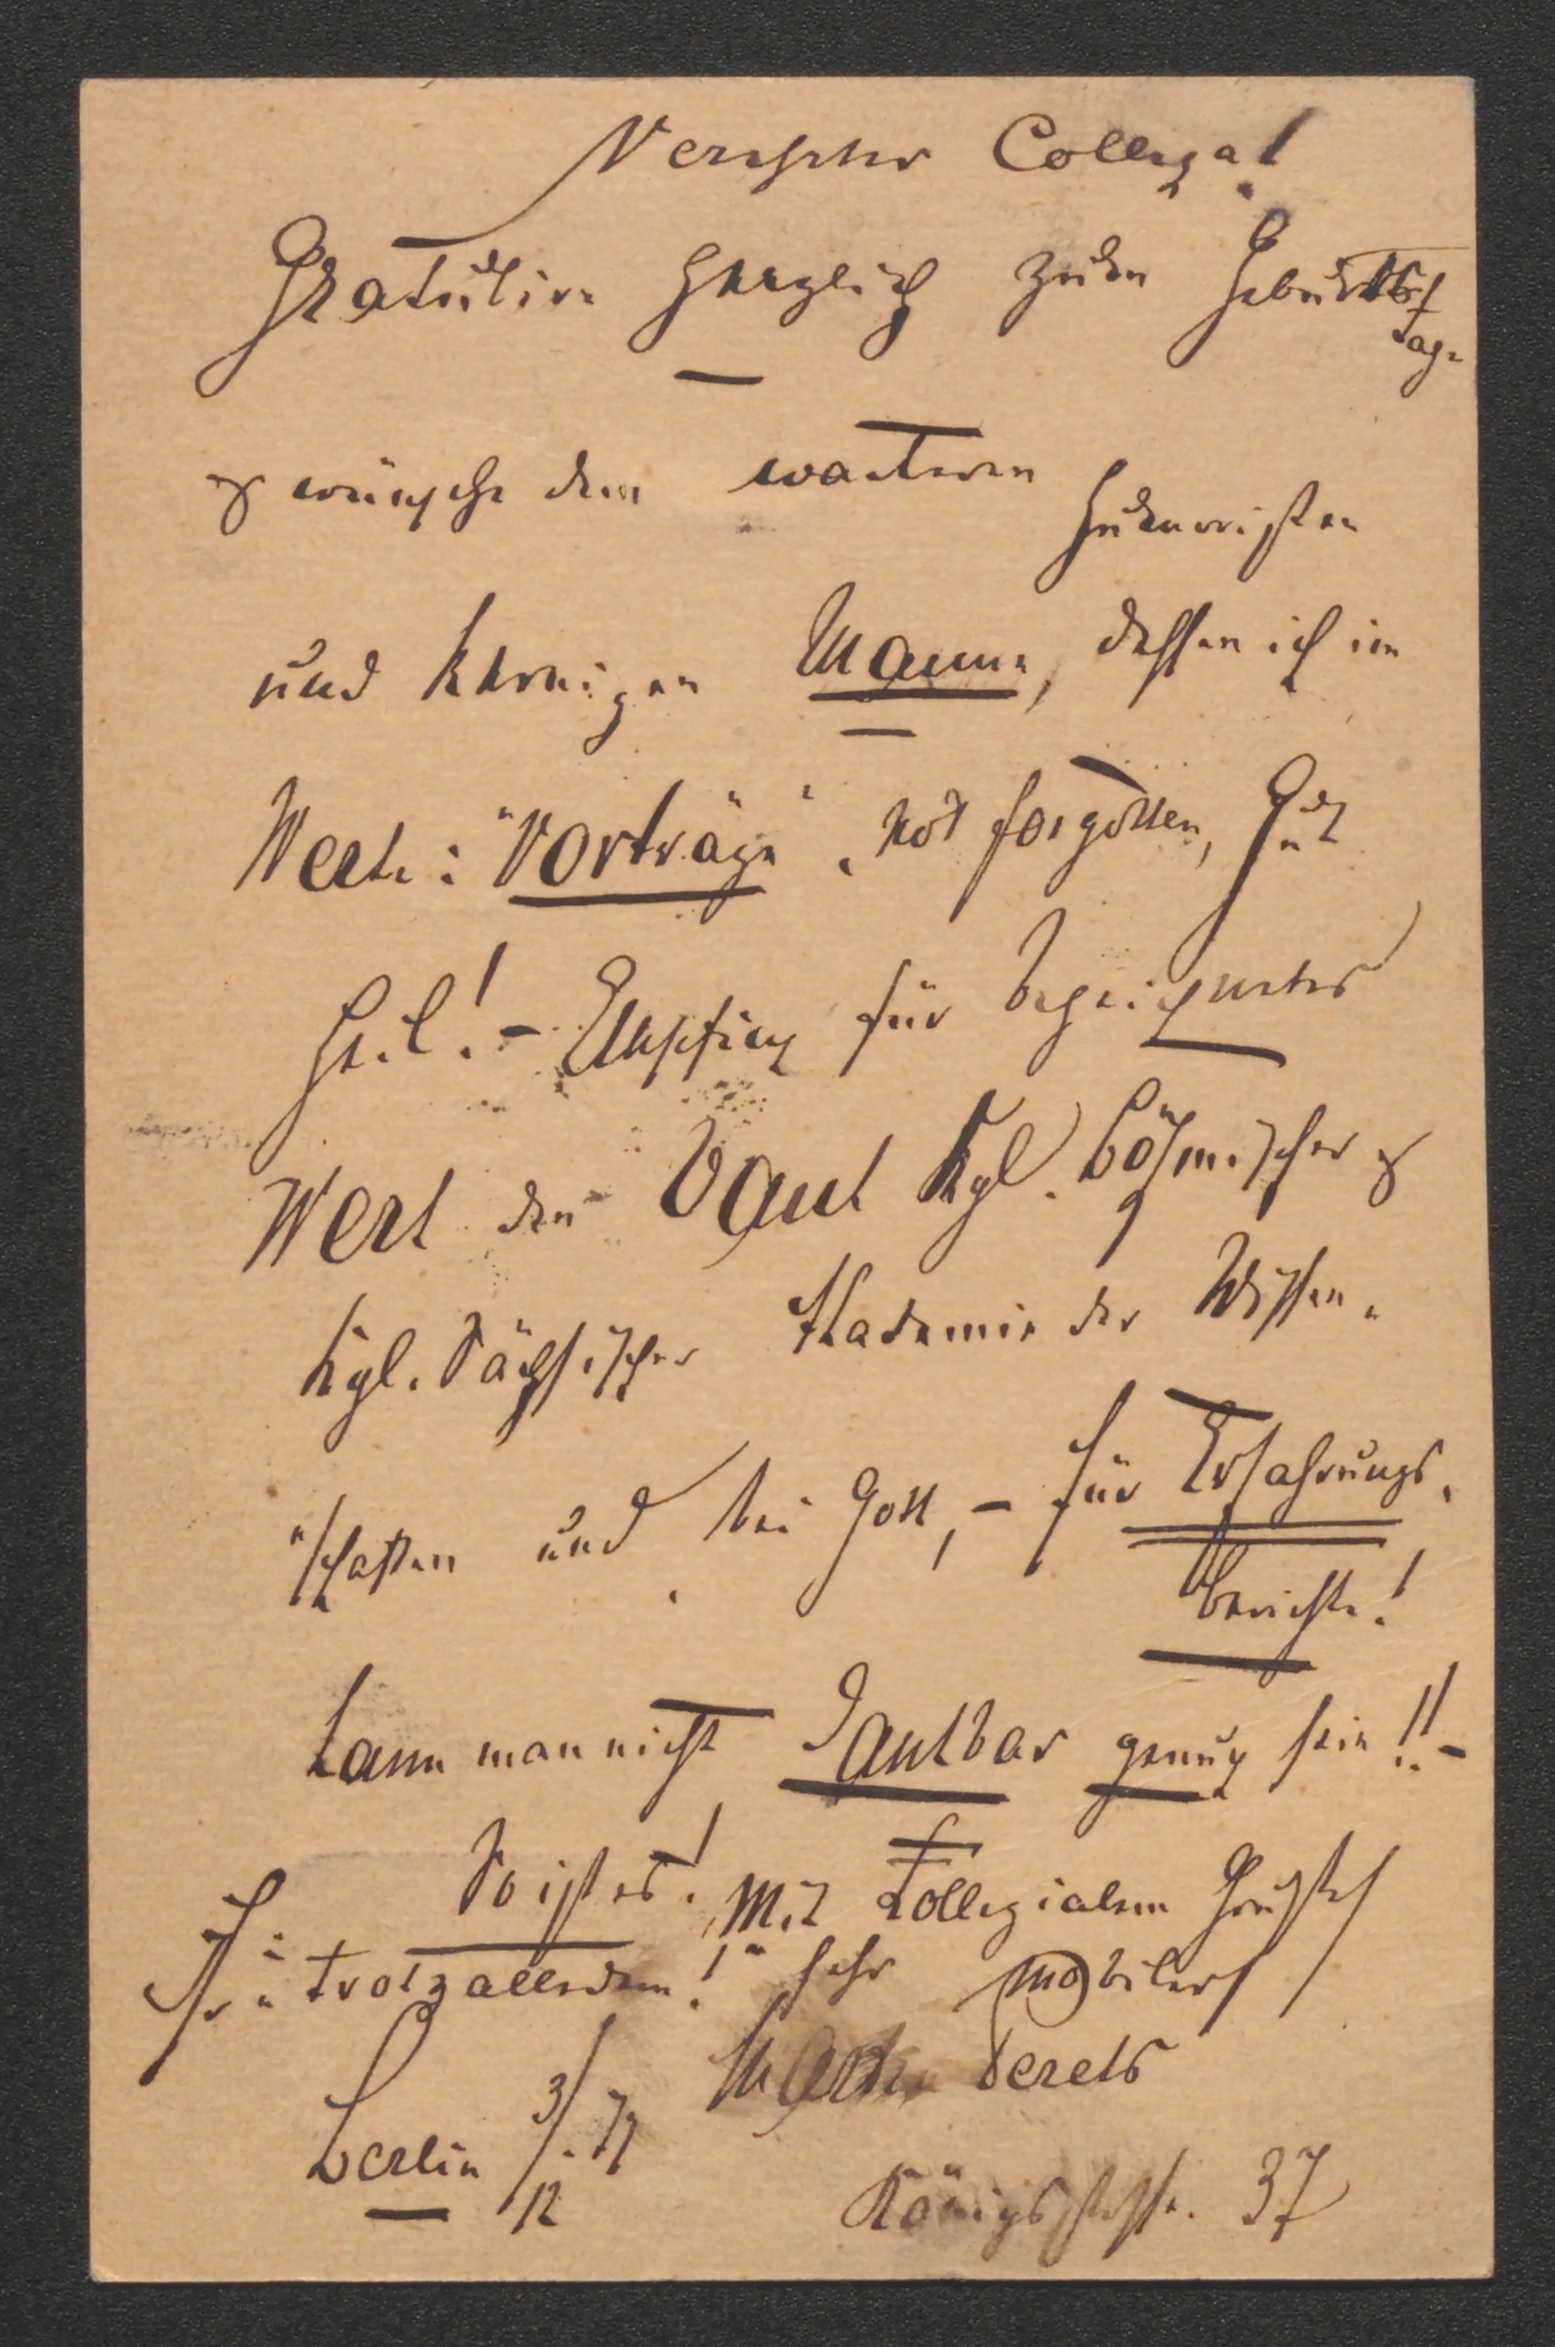 Verehrter Collega!
Gratulire herzlich zum Geburts-
tage
& wünsche dem wackeren
Humoristen
und kernigen Manne, dessen ich im
Werke: "Vorträge", not forgotten, Gut
Heil! - Empfing für bezeichnetes
Werk den Dank Kgl. böhmischer &
Kgl. Sächsischer Akademie der Wissen-
"schaften und, bei Gott, - für Erfahrungs-
berichte!
kann man nicht dankbar genug sein!! -
So ist es! Mit kollegialem Gruße
trotz alledem!" sehr mobiler
Berlin 3/12. 77
Königsstraße. 37